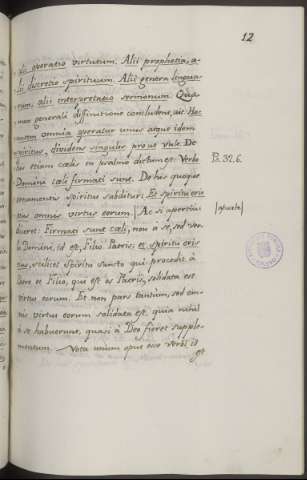 12
lii operatio virtutum. Alii prophetia, a-
lii discretio spirituum. Alii genera lingua-
rum, alii interpretatio sermonum. Qua-
mox generali diffinitione concludens, ait: Hæc
autem omnia operatur unus atque idem
spiritus, dividens singulis prout vult. De
his etiam cælis in psalmo dicitur: Verbo
Domini cæli firmati sunt. De his quoque
ornamentis Spiritus subditur: Et spiritu oris
eius omnis virtus eorum. Ac si apertius
diceret: Firmati sunt cæli, non a se, sed ver-
bo Domini, id est, Filio Patris; et spiritu oris
eius, scilicet Spiritu Sancto qui procedit à
Deo et Filio, qui est os Patris, solidata est
virtus eorum. Et non pars tantùm, sed om-
nis virtus eorum solidata est, quia nihil
à se habuerunt, quasi à Deo fieret supple-
mentum. Nota unum opus esse verbi id
est
Ps. 32. 6.